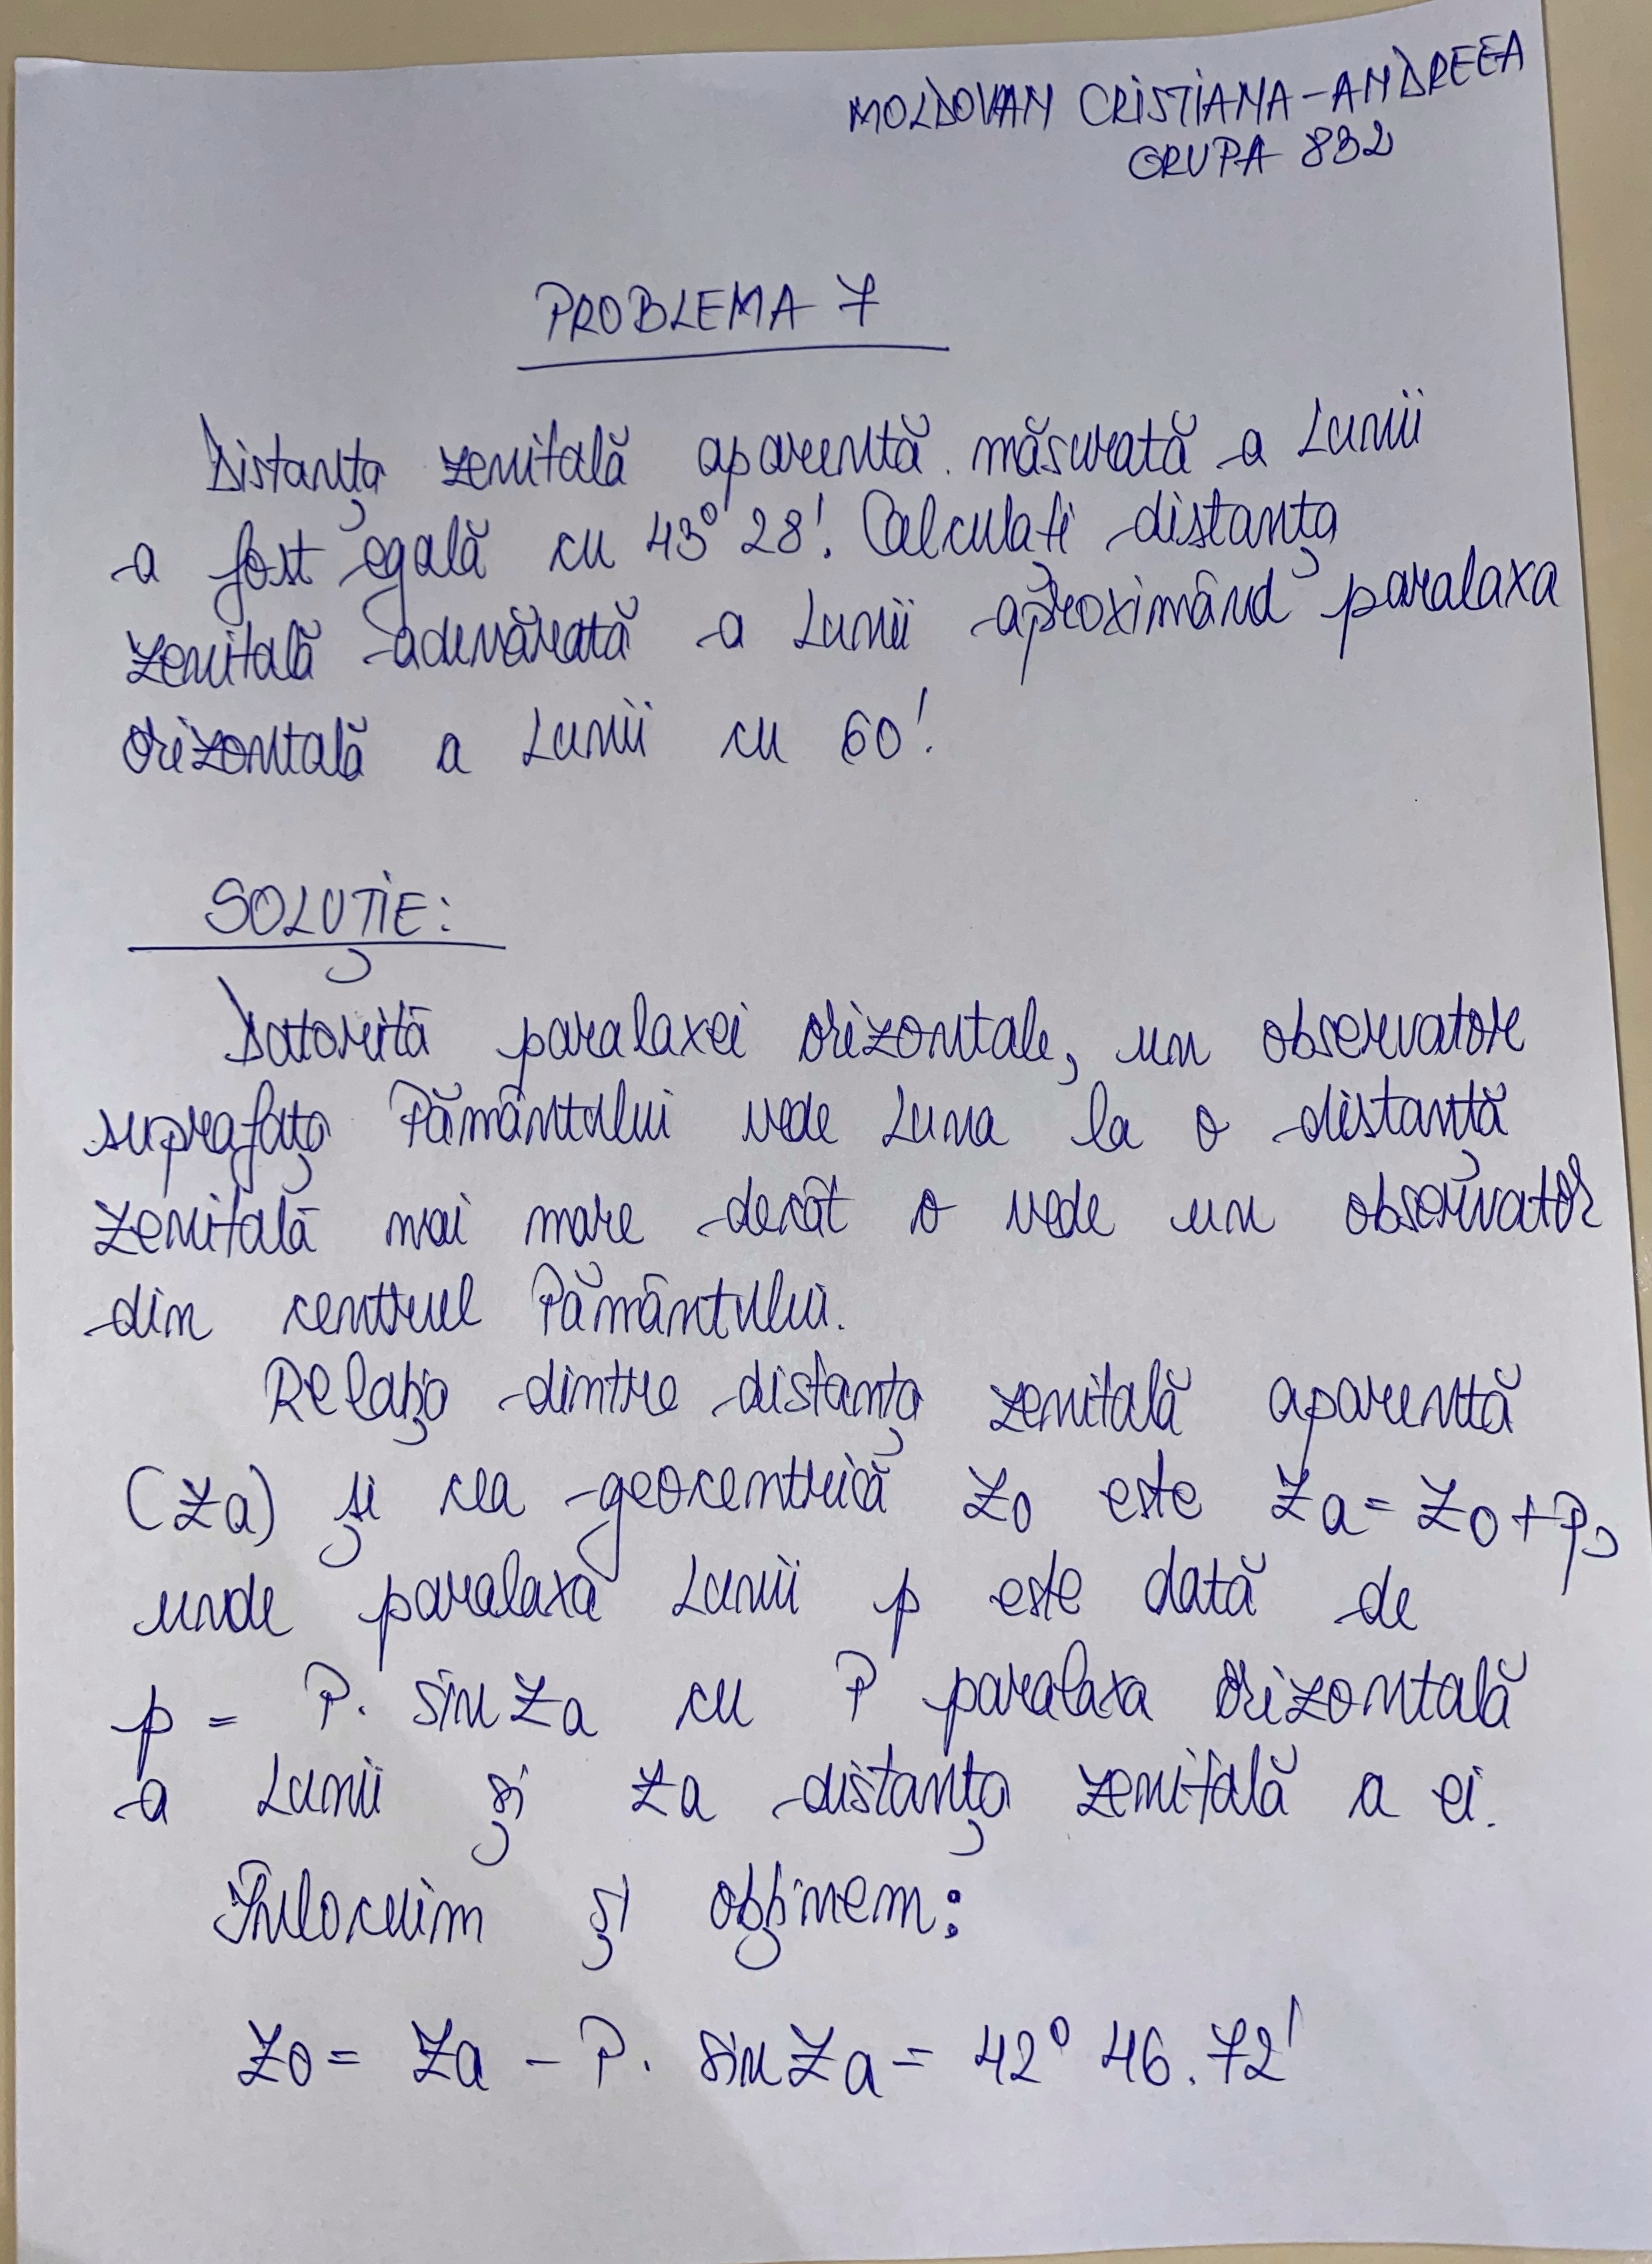 MOLDOVAN CRISTIANA-ANDREEA
GRUPA 832
PROBLEMA 7
Distanța zenitală aparentă măsurată a Lunii
a fost egală cu 43° 28'. Calculați distanța
zenitală adevărată a Lunii aproximând paralaxa
orizontală a Lunii cu 60'.
SOLUȚIE:
Datorită paralaxei orizontale, un observator
suprafața Pământului vede Luna la o distanță
zenitală mai mare decât o vede un observator
din centrul Pământului.
Relația dintre distanța zenitală aparentă
(Za) și cea geocentrică Zo este Za = Zo + p,
unde paralaxa Lunii p este dată de
p = P. sin Za cu P paralaxa orizontală
a Lunii și Za distanța zenitală a ei.
Înlocuim și obținem:
Zo = Za - P. sin Za = 42° 46.72'